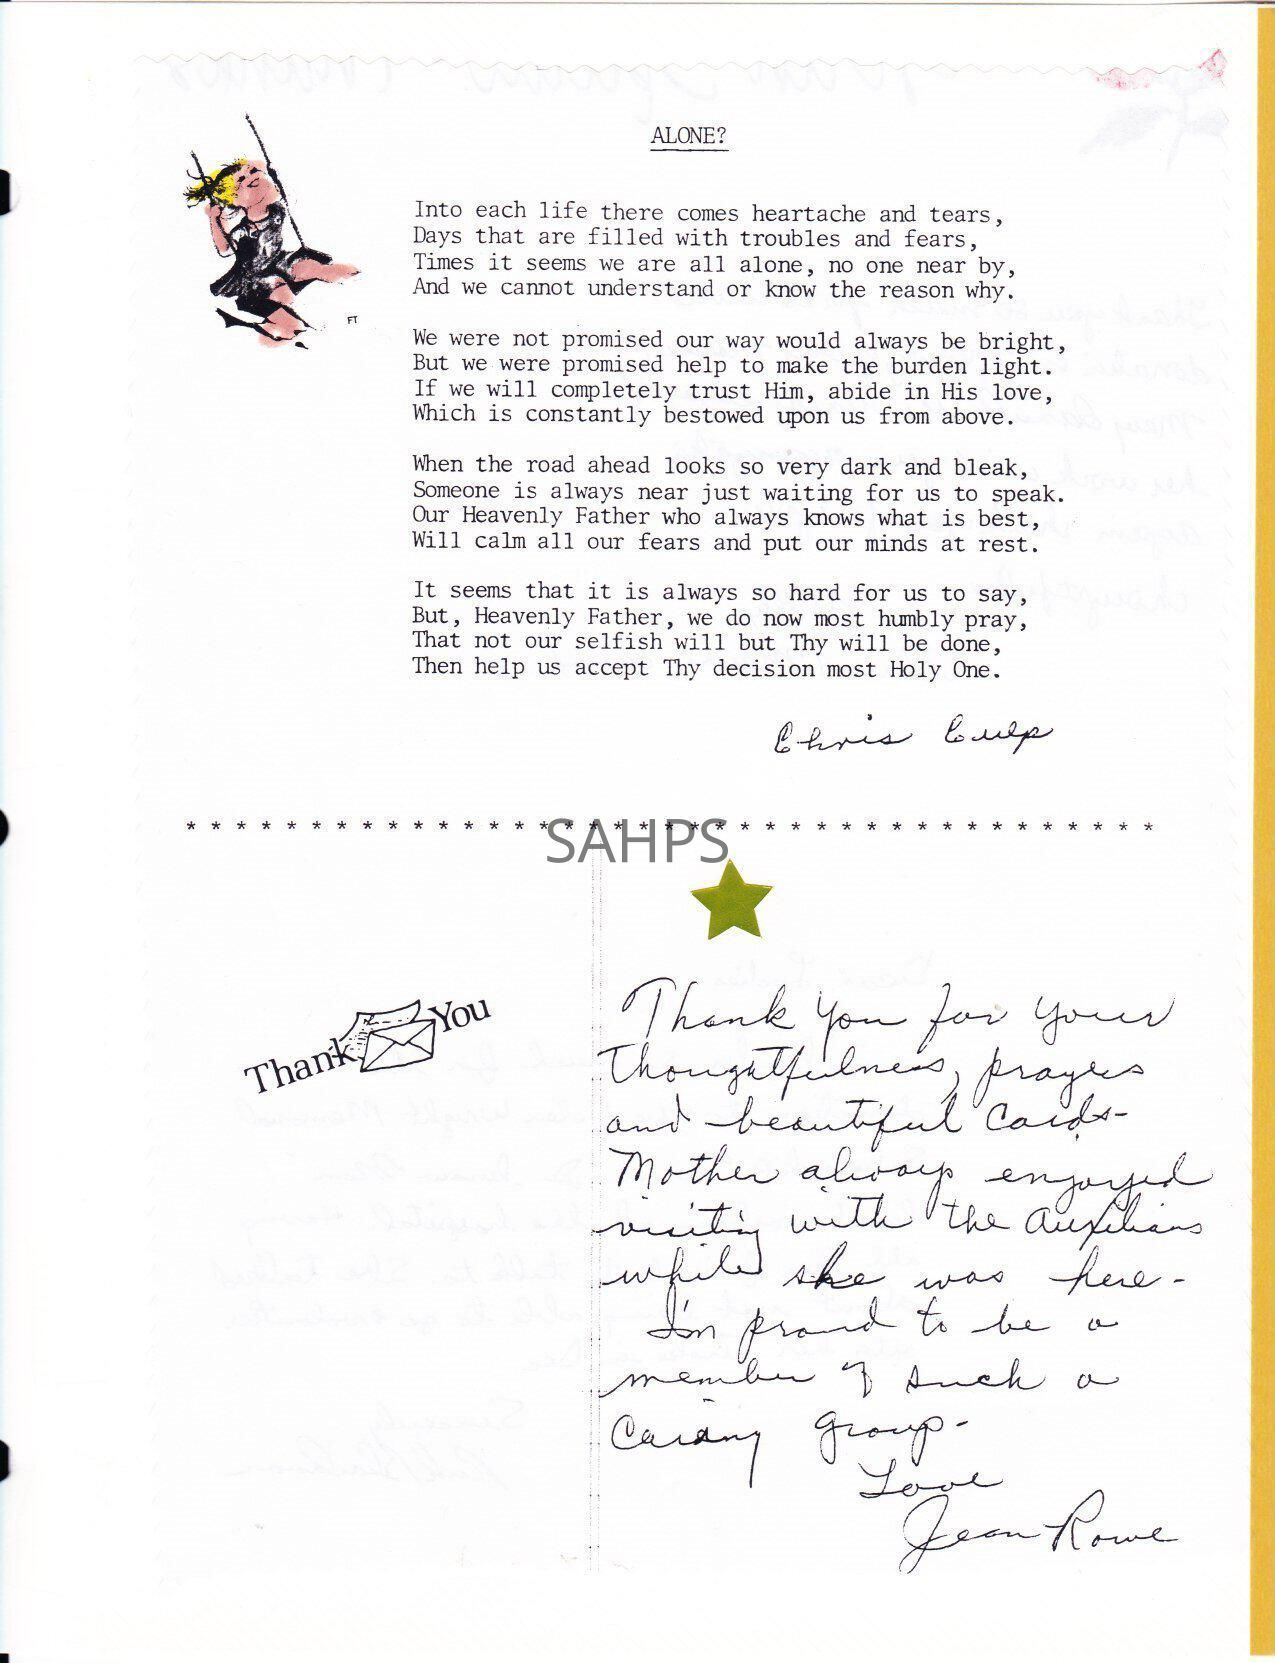 ALONE?
Into each life there comes heartache and tears,
Days that are filled with troubles and fears,
Times it seems we are all alone, no one near by,
And we cannot understand or know the reason why.
We were not promised our way would always be bright,
But we were promised help to make the burden light.
If we will completely trust Him, abide in His love,
Which is constantly bestowed upon us from above.
When the road ahead looks so very dark and bleak,
Someone is always near just waiting for us to speak.
Our Heavenly Father who always knows what is best,
Will calm all our fears and put our minds at rest.
It seems that it is always so hard for us to say,
But, Heavenly Father, we do now most humbly pray,
That not our selfish will but Thy will be done,
Then help us accept Thy decision most Holy One.
FT
Chris Culp
* * * * * * * * * * * * * * * * * * * * * * * * * * * * * * * * * * * * * * *
SAHPS
Thank You
Thank You for Your
thoughtfulness, prayers
and beautiful cards-
Mother always enjoyed
visiting with the Auxilians
while she was here-
I'm proud to be a
member of such a
Caring group-
Love
Jean Rowe